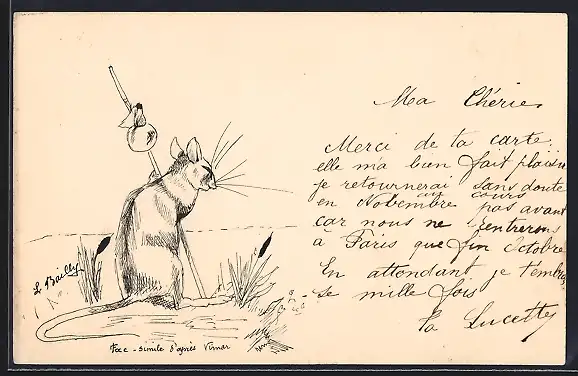 Ma Chérie,
Merci de ta carte,
elle m'a bien fait plaisir
je retournerai sans doute
au cours
en Nobembre pas avant
car nous ne rentrerons
à Paris que fin Octobre
En attendant je t'embras
-se mille fois
Ta Lucette
L. Bailly
Fac-simile d'après Vimar